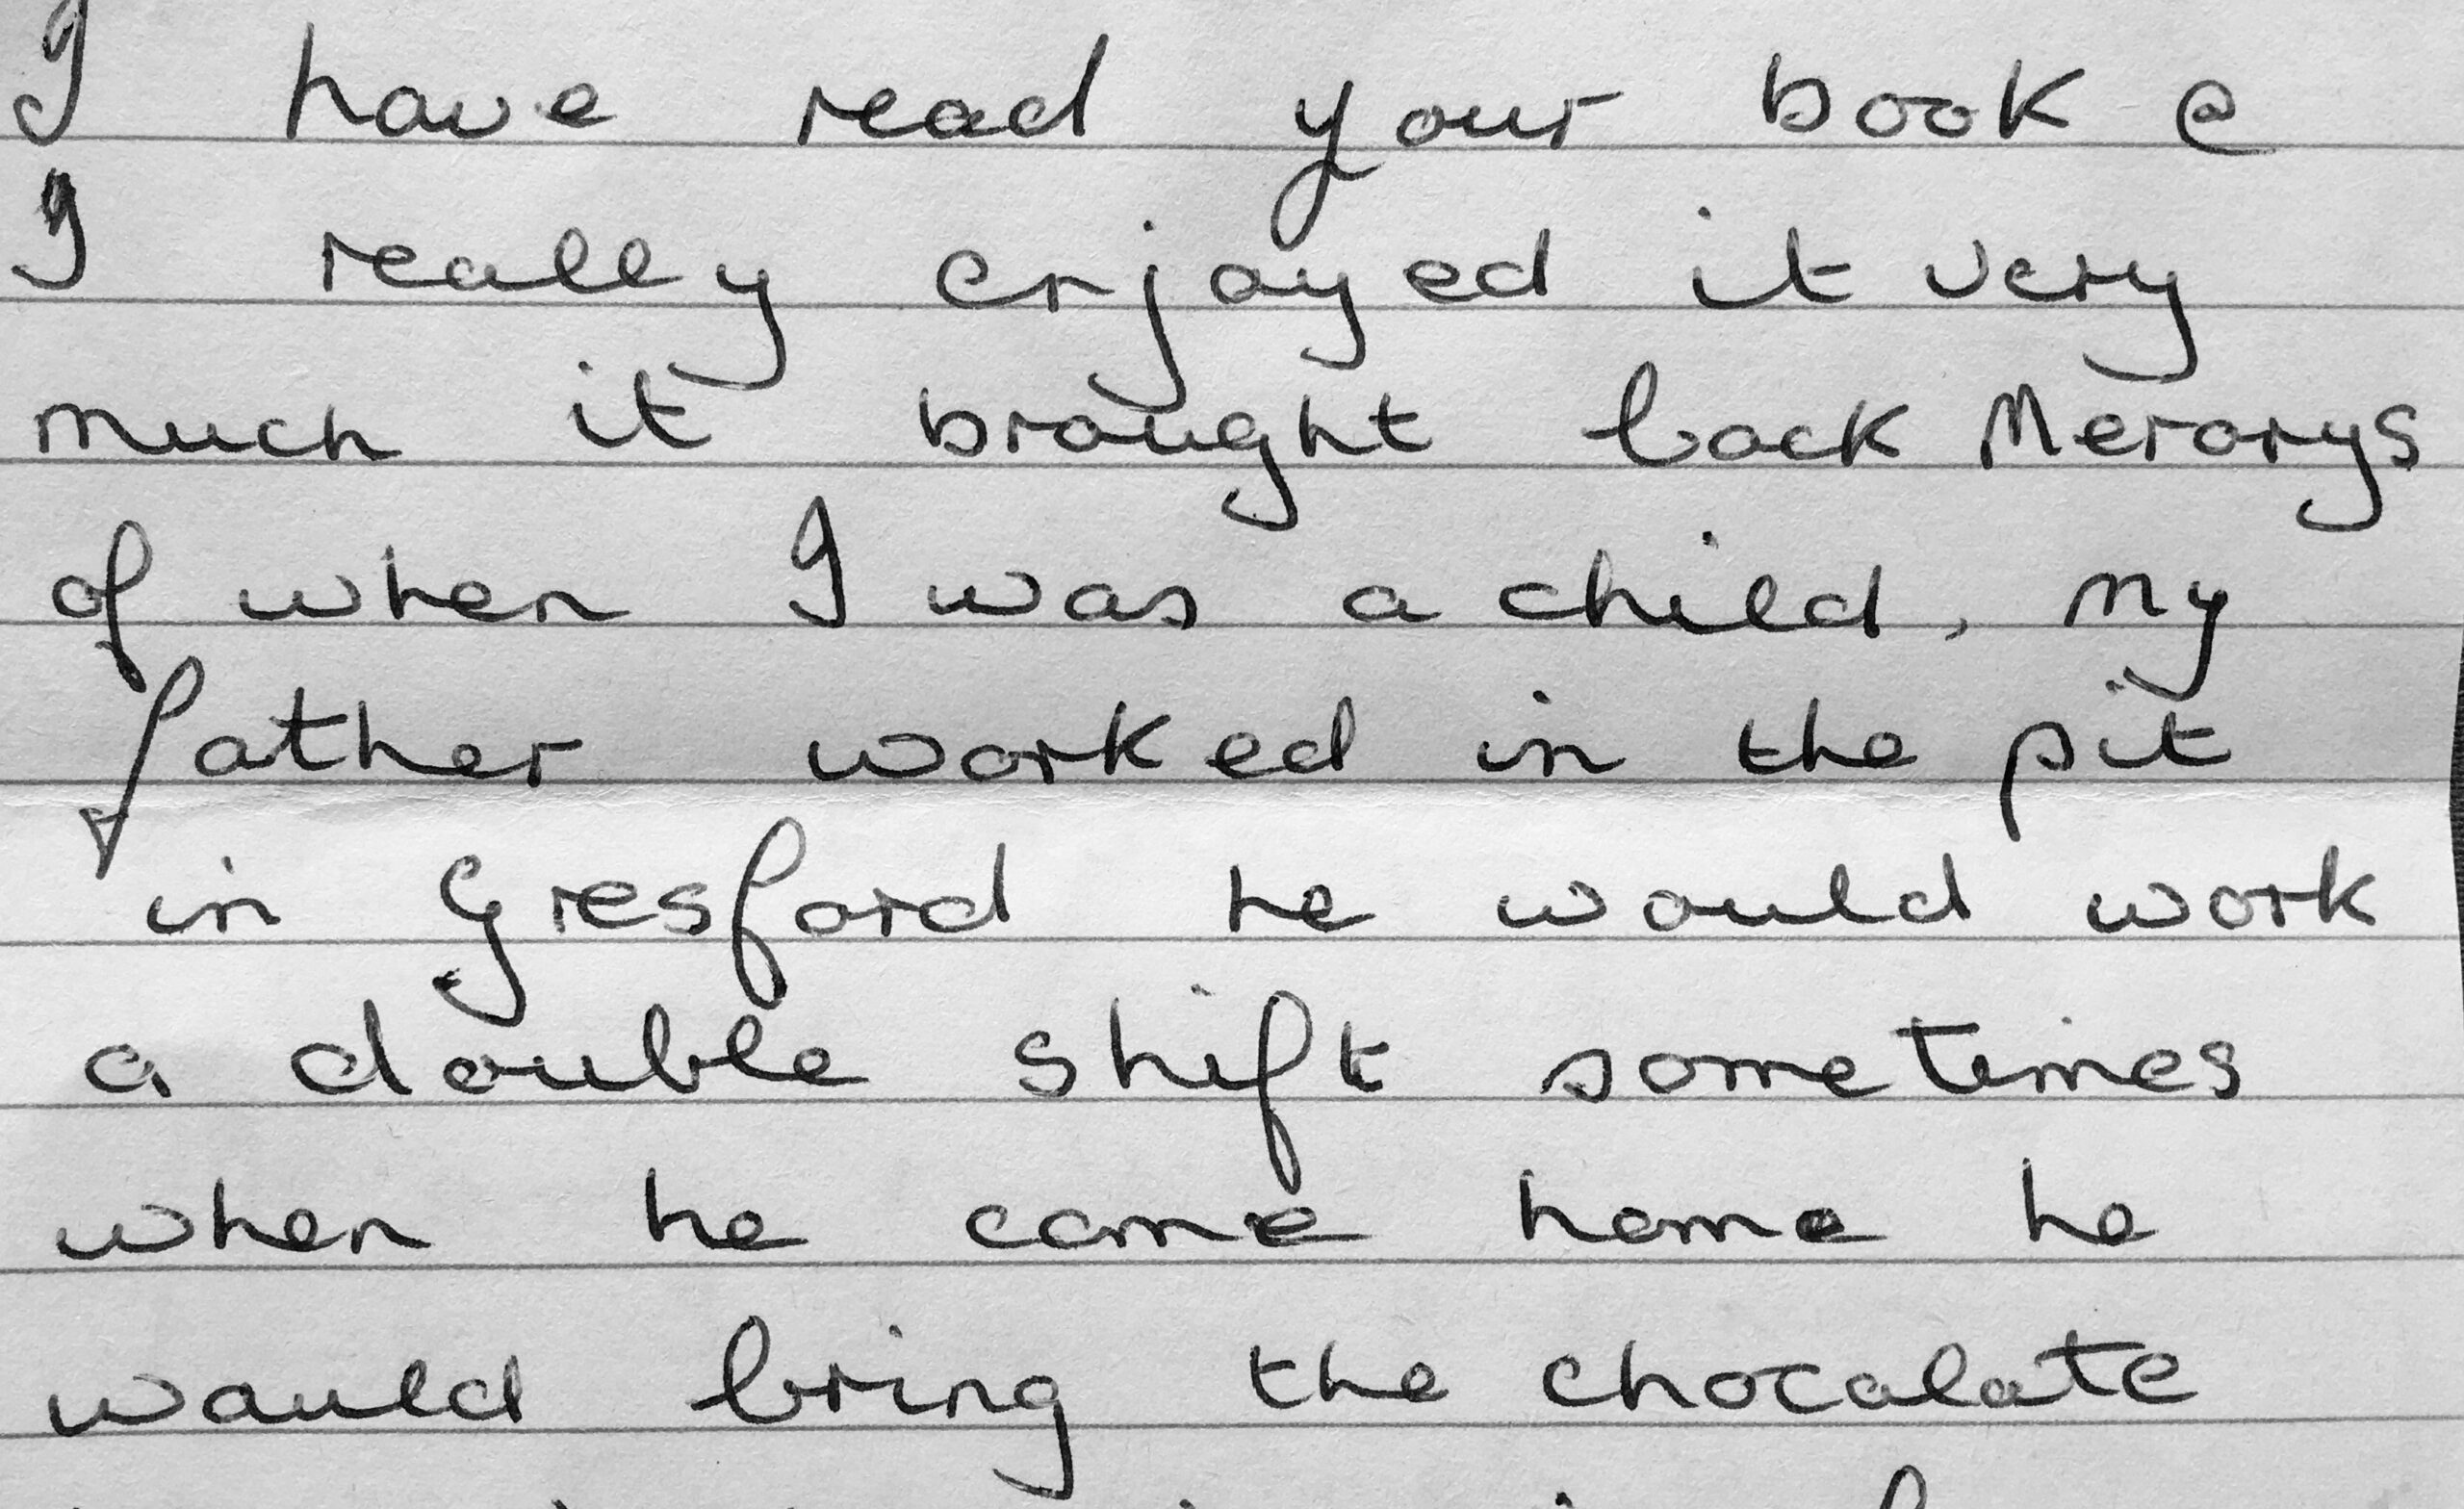 I have read your book @
I really enjoyed it very
much it brought back Merorys
of when I was a child, my
father worked in the pit
in Gresford he would work
a double shift sometimes
when he came home he
would bring the chocalate